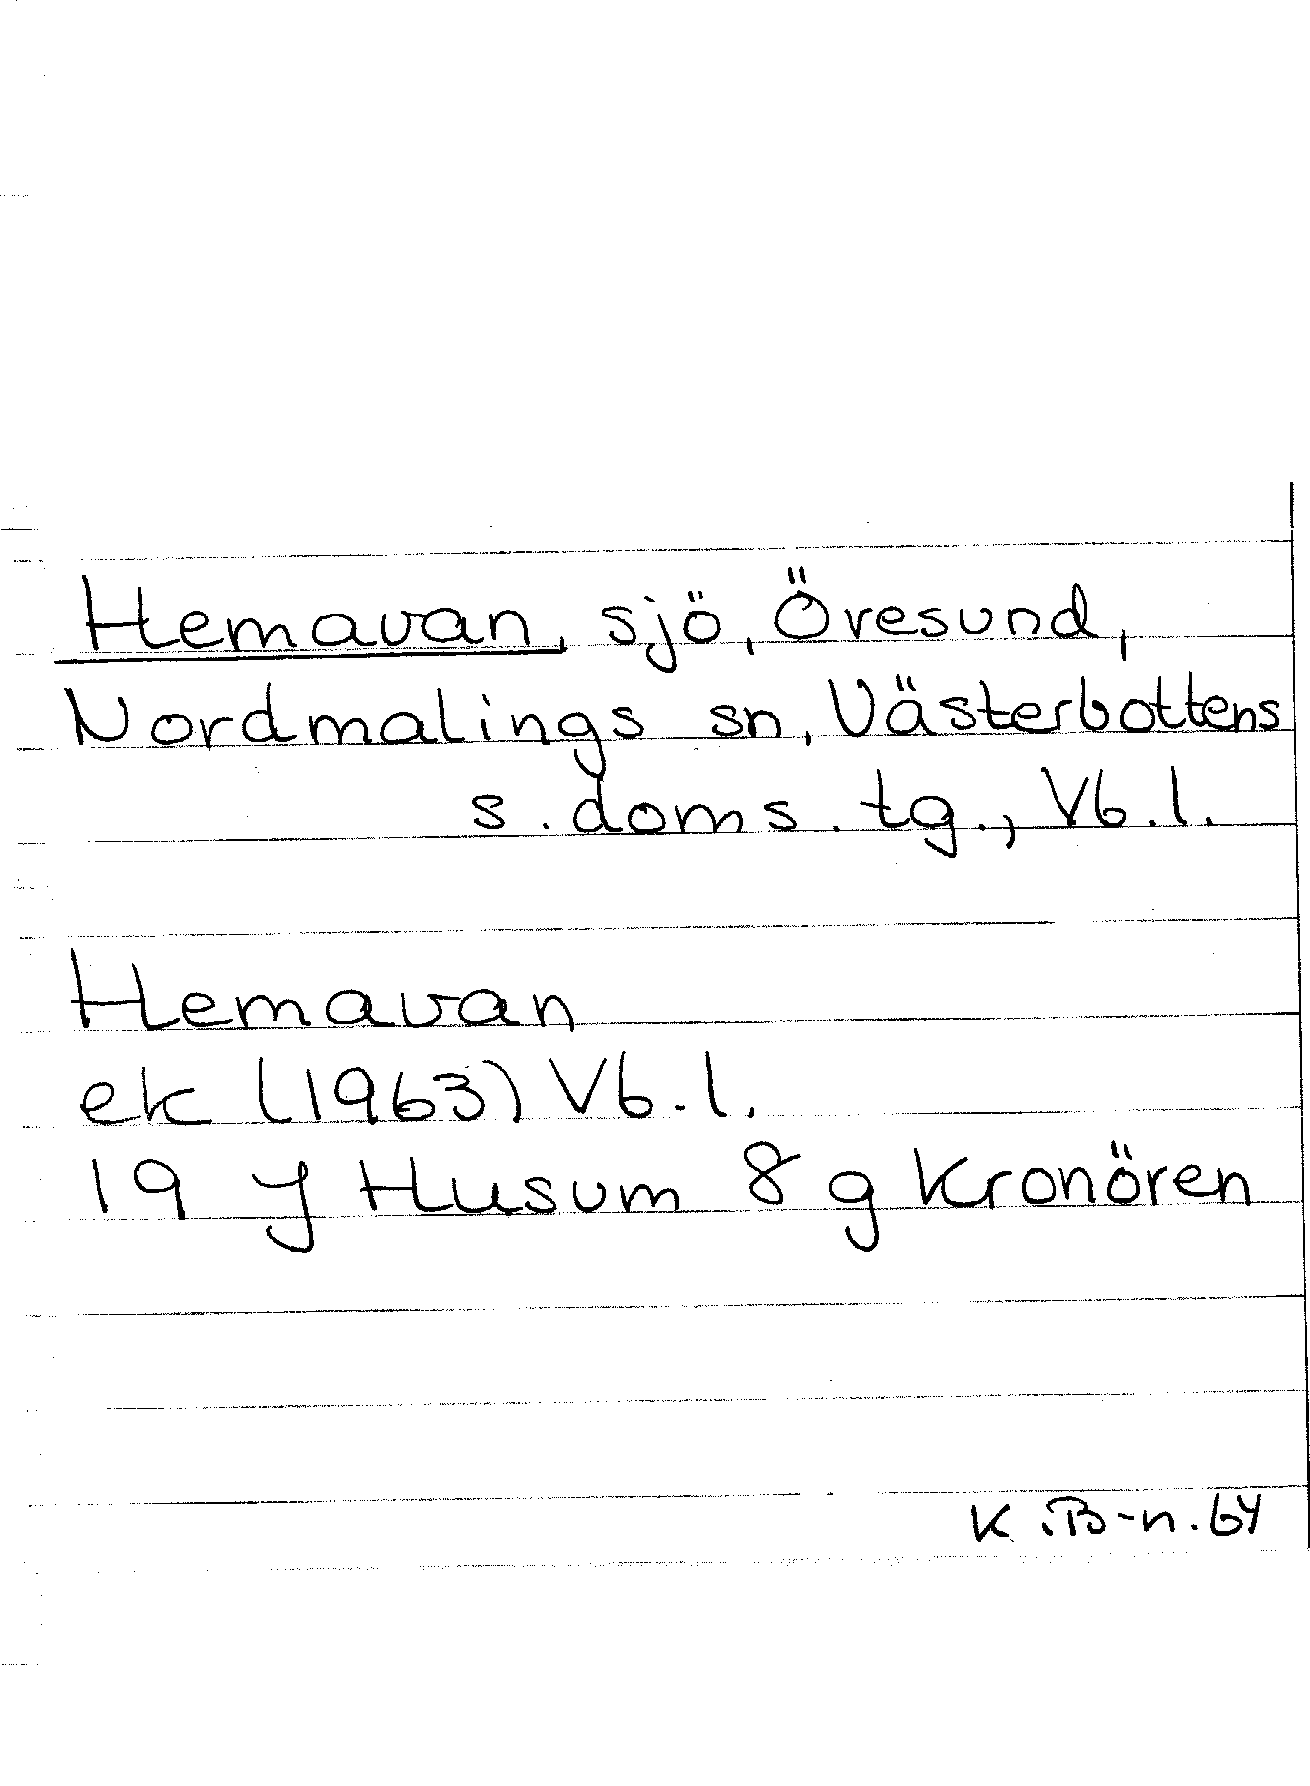 Hemavan, sjö, Öresund,
Nordmalings sn, Västerbottens
s. doms. tg., Vb. l.
Hemavan
ek (1963) Vb. l.
19 J Husum 8 g Kronören
K. B-n. 64